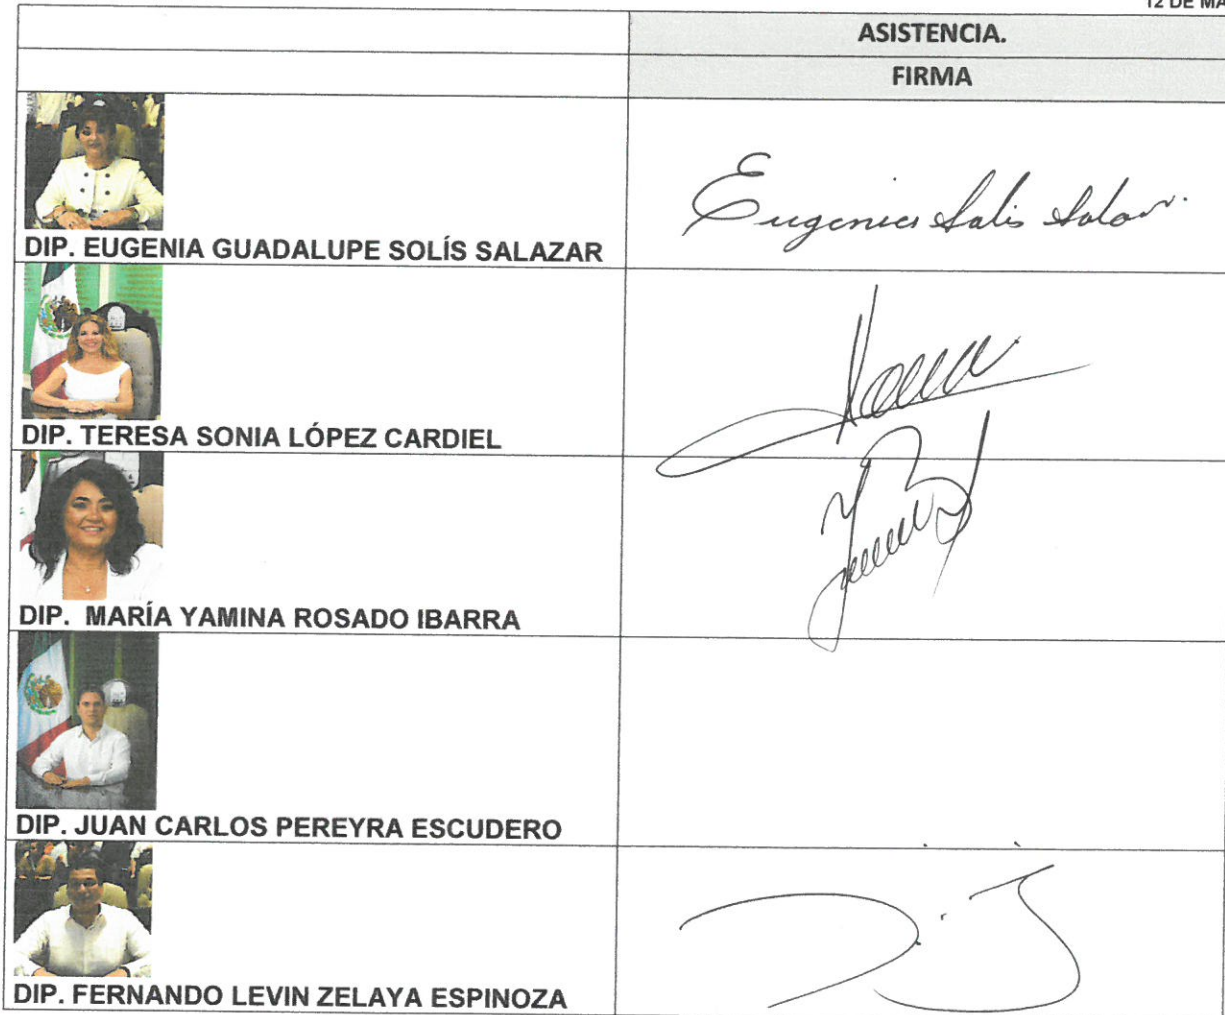 12 DE MA
ASISTENCIA.
FIRMA
Eugenia Solis Salazar.
DIP. EUGENIA GUADALUPE SOLÍS SALAZAR
DIP. TERESA SONIA LÓPEZ CARDIEL
DIP. MARÍA YAMINA ROSADO IBARRA
DIP. JUAN CARLOS PEREYRA ESCUDERO
DIP. FERNANDO LEVIN ZELAYA ESPINOZA